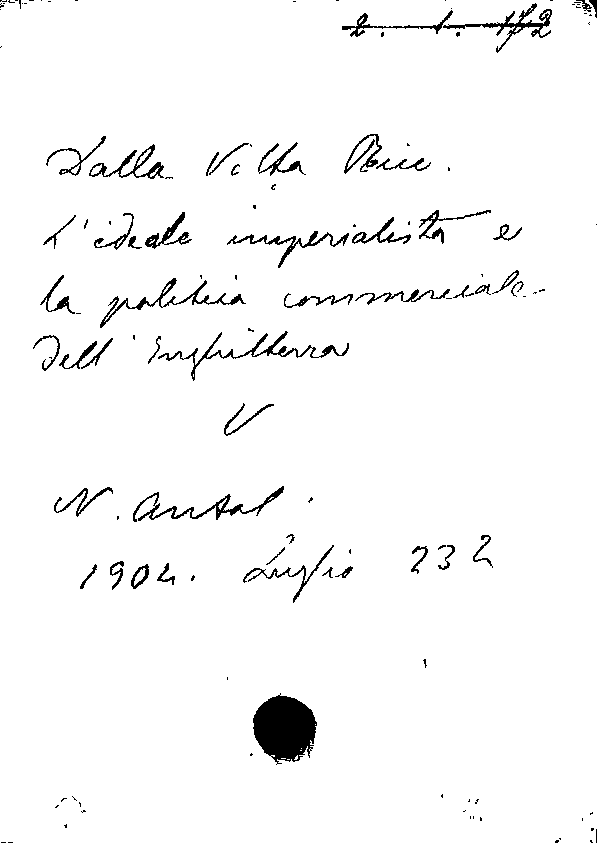 2. 1. 172
Dalla Volta Ricc.
L'ideale imperialista e
la politica commerciale
dell'Inghilterra
V
N. Antol.
1904. Luglio 232